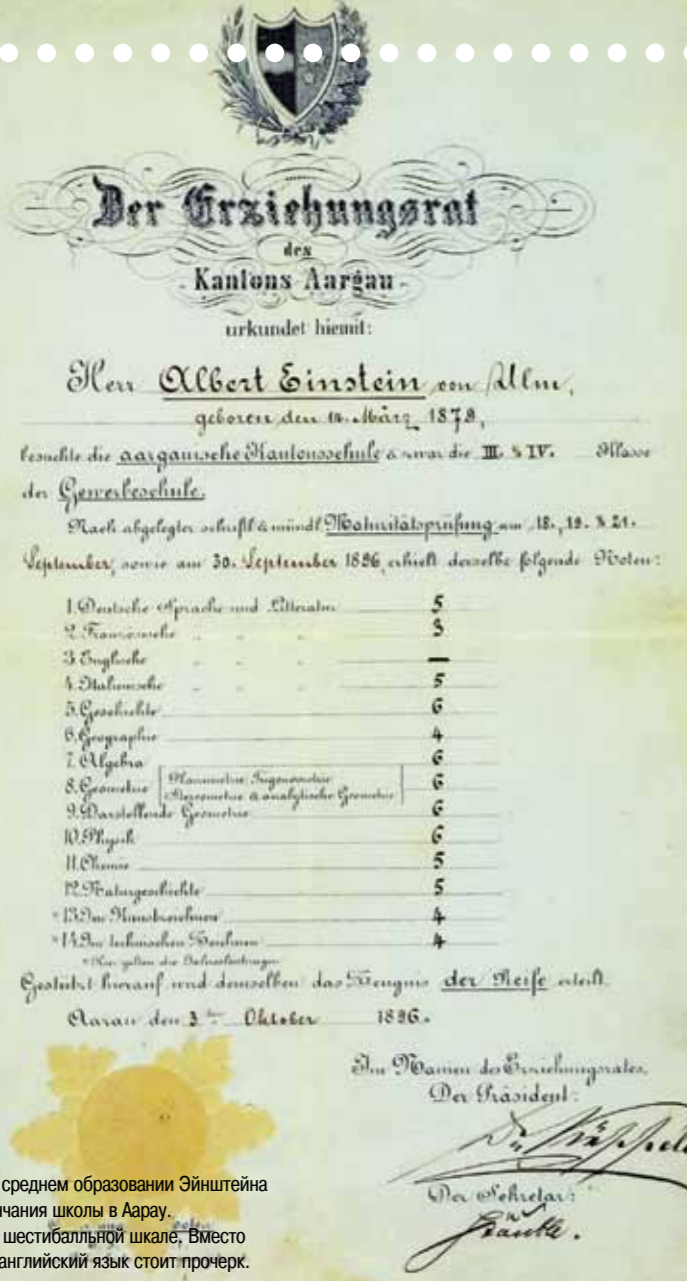 Der Erziehungsrat
des
Kantons Aargau
urkundet hiemit:
Herr Albert Einstein von Ulm,
geboren den 14. März 1879,
besuchte die aargauische Kantonsschule & zwar die III. & IV. Klasse
der Gewerbeschule.
Nach abgelegter schriftl. & mündl. Maturitätsprüfung am 18., 19. & 21.
September, sowie am 30. September 1896, erhielt derselbe folgende Noten:
1. Deutsche Sprache und Litteratur 5
2. Französische " " " 3
3. Englische " " " —
4. Italienische " " " 5
5. Geschichte 6
6. Geographie 4
7. Algebra 6
8. Geometrie [Planimetrie, Trigonometrie 6
Stereometrie & analytische Geometrie]
9. Darstellende Geometrie 6
10. Physik 6
11. Chemie 5
12. Naturgeschichte 5
* 13. Im Kunstzeichnen 4
* 14. Im technischen Zeichnen 4
* Hier gelten die Jahresleistungen.
Gestützt hierauf wird demselben das Zeugnis der Reife erteilt.
Aarau den 3ten Oktober 1896.
Im Namen des Erziehungsrates,
Der Präsident:
Der Sekretär:
среднем образовании Эйнштейна
чания школы в Аарау.
шестибалльной шкале. Вместо
английский язык стоит прочерк.